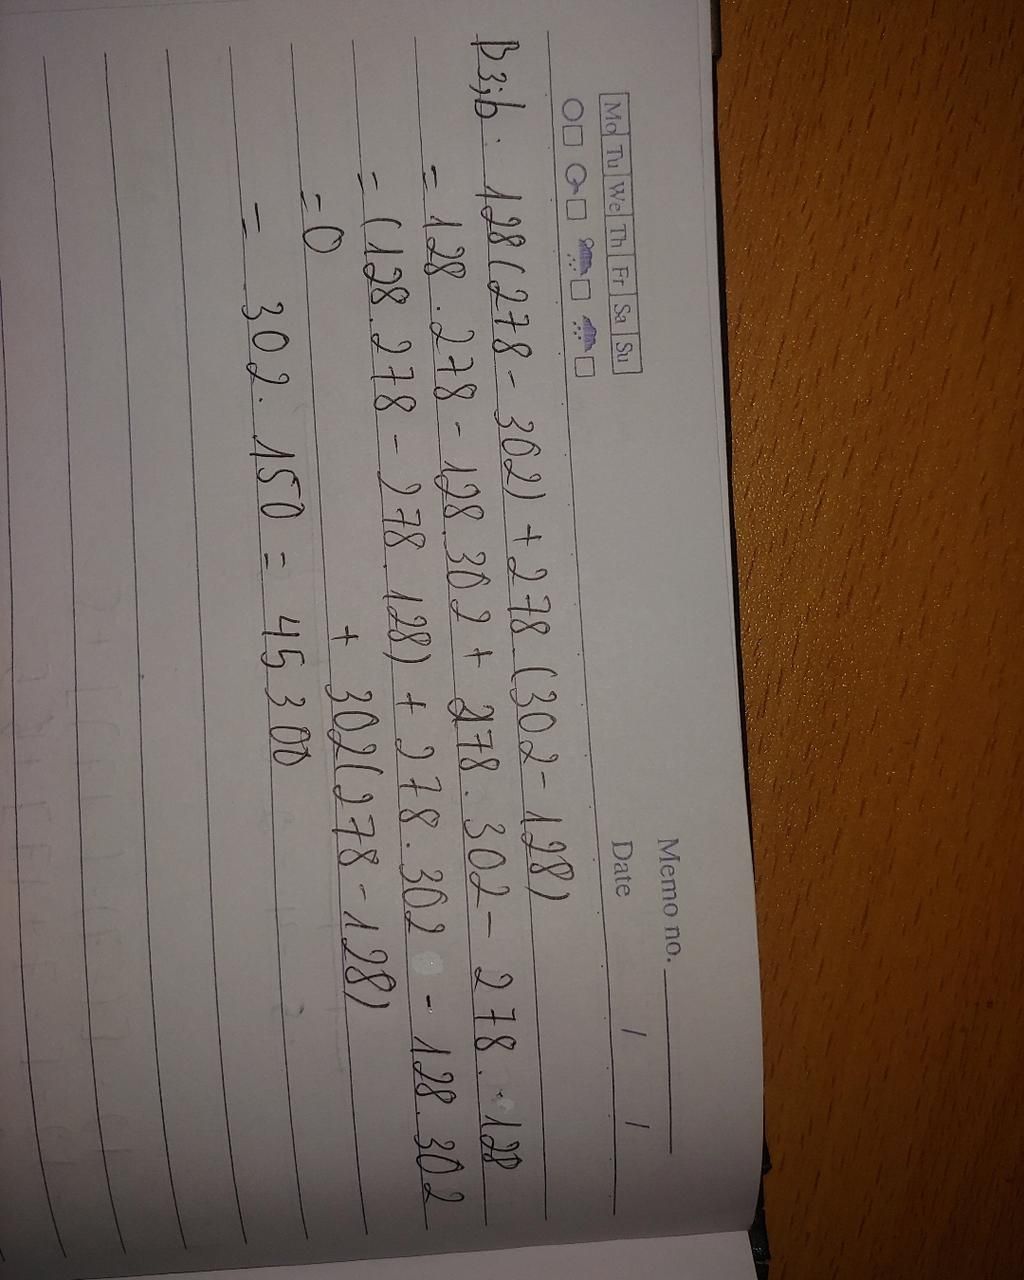 Memo no.
Mo Tu We Th Fr Sa Su
Date / /
B3;b. 128(278 - 302) + 278 (302 - 128)
= 128 . 278 - 128.302 + 278 . 302 - 278 . 128
= (128.278 - 278.128) + 278.302 - 128.302
= 0 + 302(278 - 128)
= 302. 150 = 45300